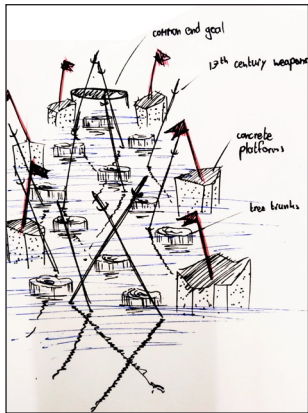 common end goal
13th century weapons
concrete
platforms
tree trunks